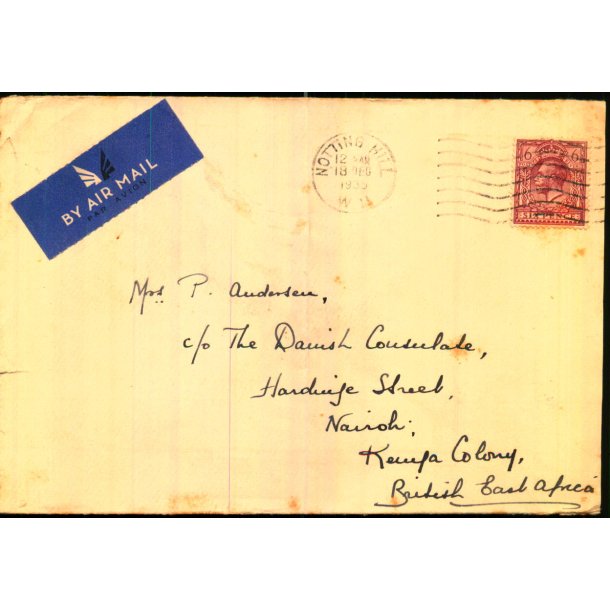 BY AIR MAIL
PAR AVION
NOTTING HILL
12
18 DEC
1935
W.11
6 6
SIXPENCE
Mrs P. Andersen,
c/o The Danish Consulate,
Hardinge Street,
Nairobi,
Kenya Colony,
British East Africa